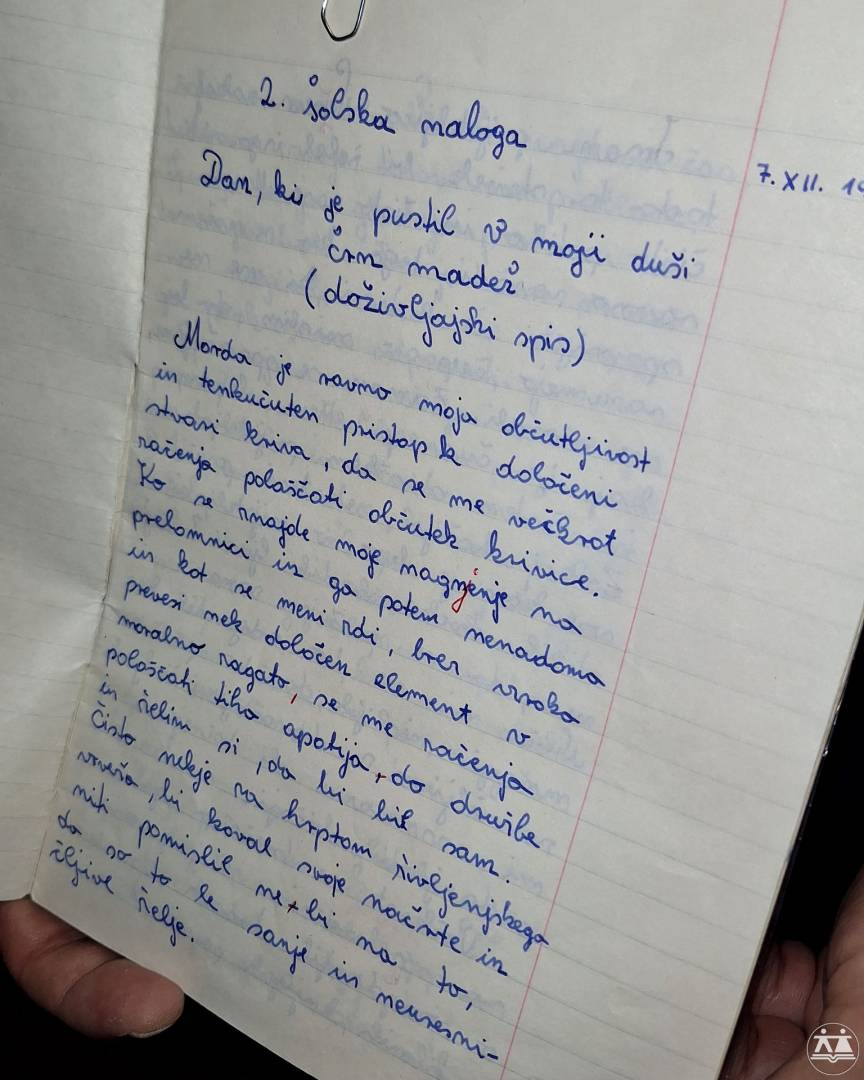 2. šolska naloga
7. XII. 19
Dan, ki je pustil v moji duši
črn madež
(doživljajski spis)
Morda je ravno moja občutljivost
in tenkočuten pristop k določeni
stvari kriva, da se me večkrat
začenja polaščati občutek krivice.
Ko se znajde moje nagnjenje na
prelomnici in ga potem nenadoma
in kot se meni zdi, brez vzroka
prevesi nek določen element v
moralno zagato, se me začenja
polaščati tiha apatija do družbe
in želim si, da bi bil sam.
Čisto nekje za hrbtom življenjskega
vrveža, bi koval svoje načrte in
niti pomislil ne bi na to,
da so to le sanje in neuresni-
čljive želje.